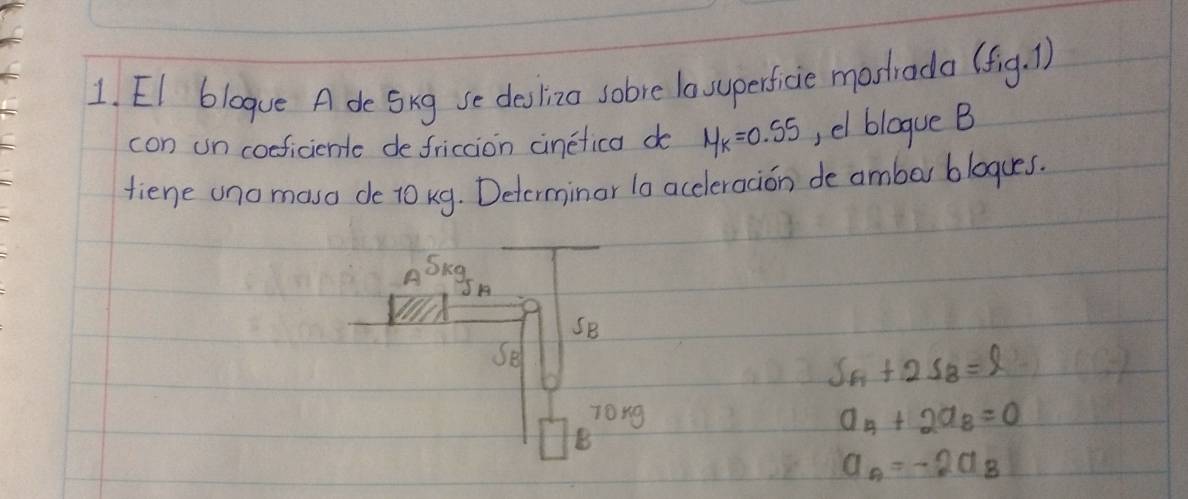 1. El bloque A de 5kg se desliza sobre la superficie mostrada (fig.1)
con un coeficiente de fricción cinética de μk=0.55, el bloque B
tiene una masa de 10 kg. Determinar la aceleración de ambos bloques.
A 5kg
SA
SB
SB
10 kg
B
SA + 2SB = l
aA + 2aB = 0
aA = -2aB